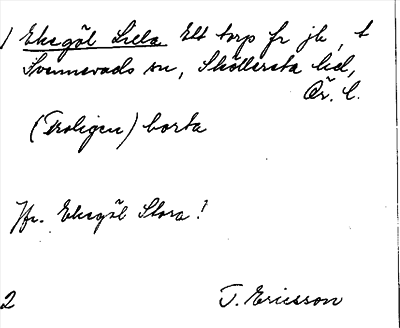 ) Eksgöl Lilla Ett torp fr jb, t
Svennevads sn, Sköllersta hd,
Ör. l.
(Troligen) borta
Jfr. Eksgöl Stora!
2 T. Ericsson